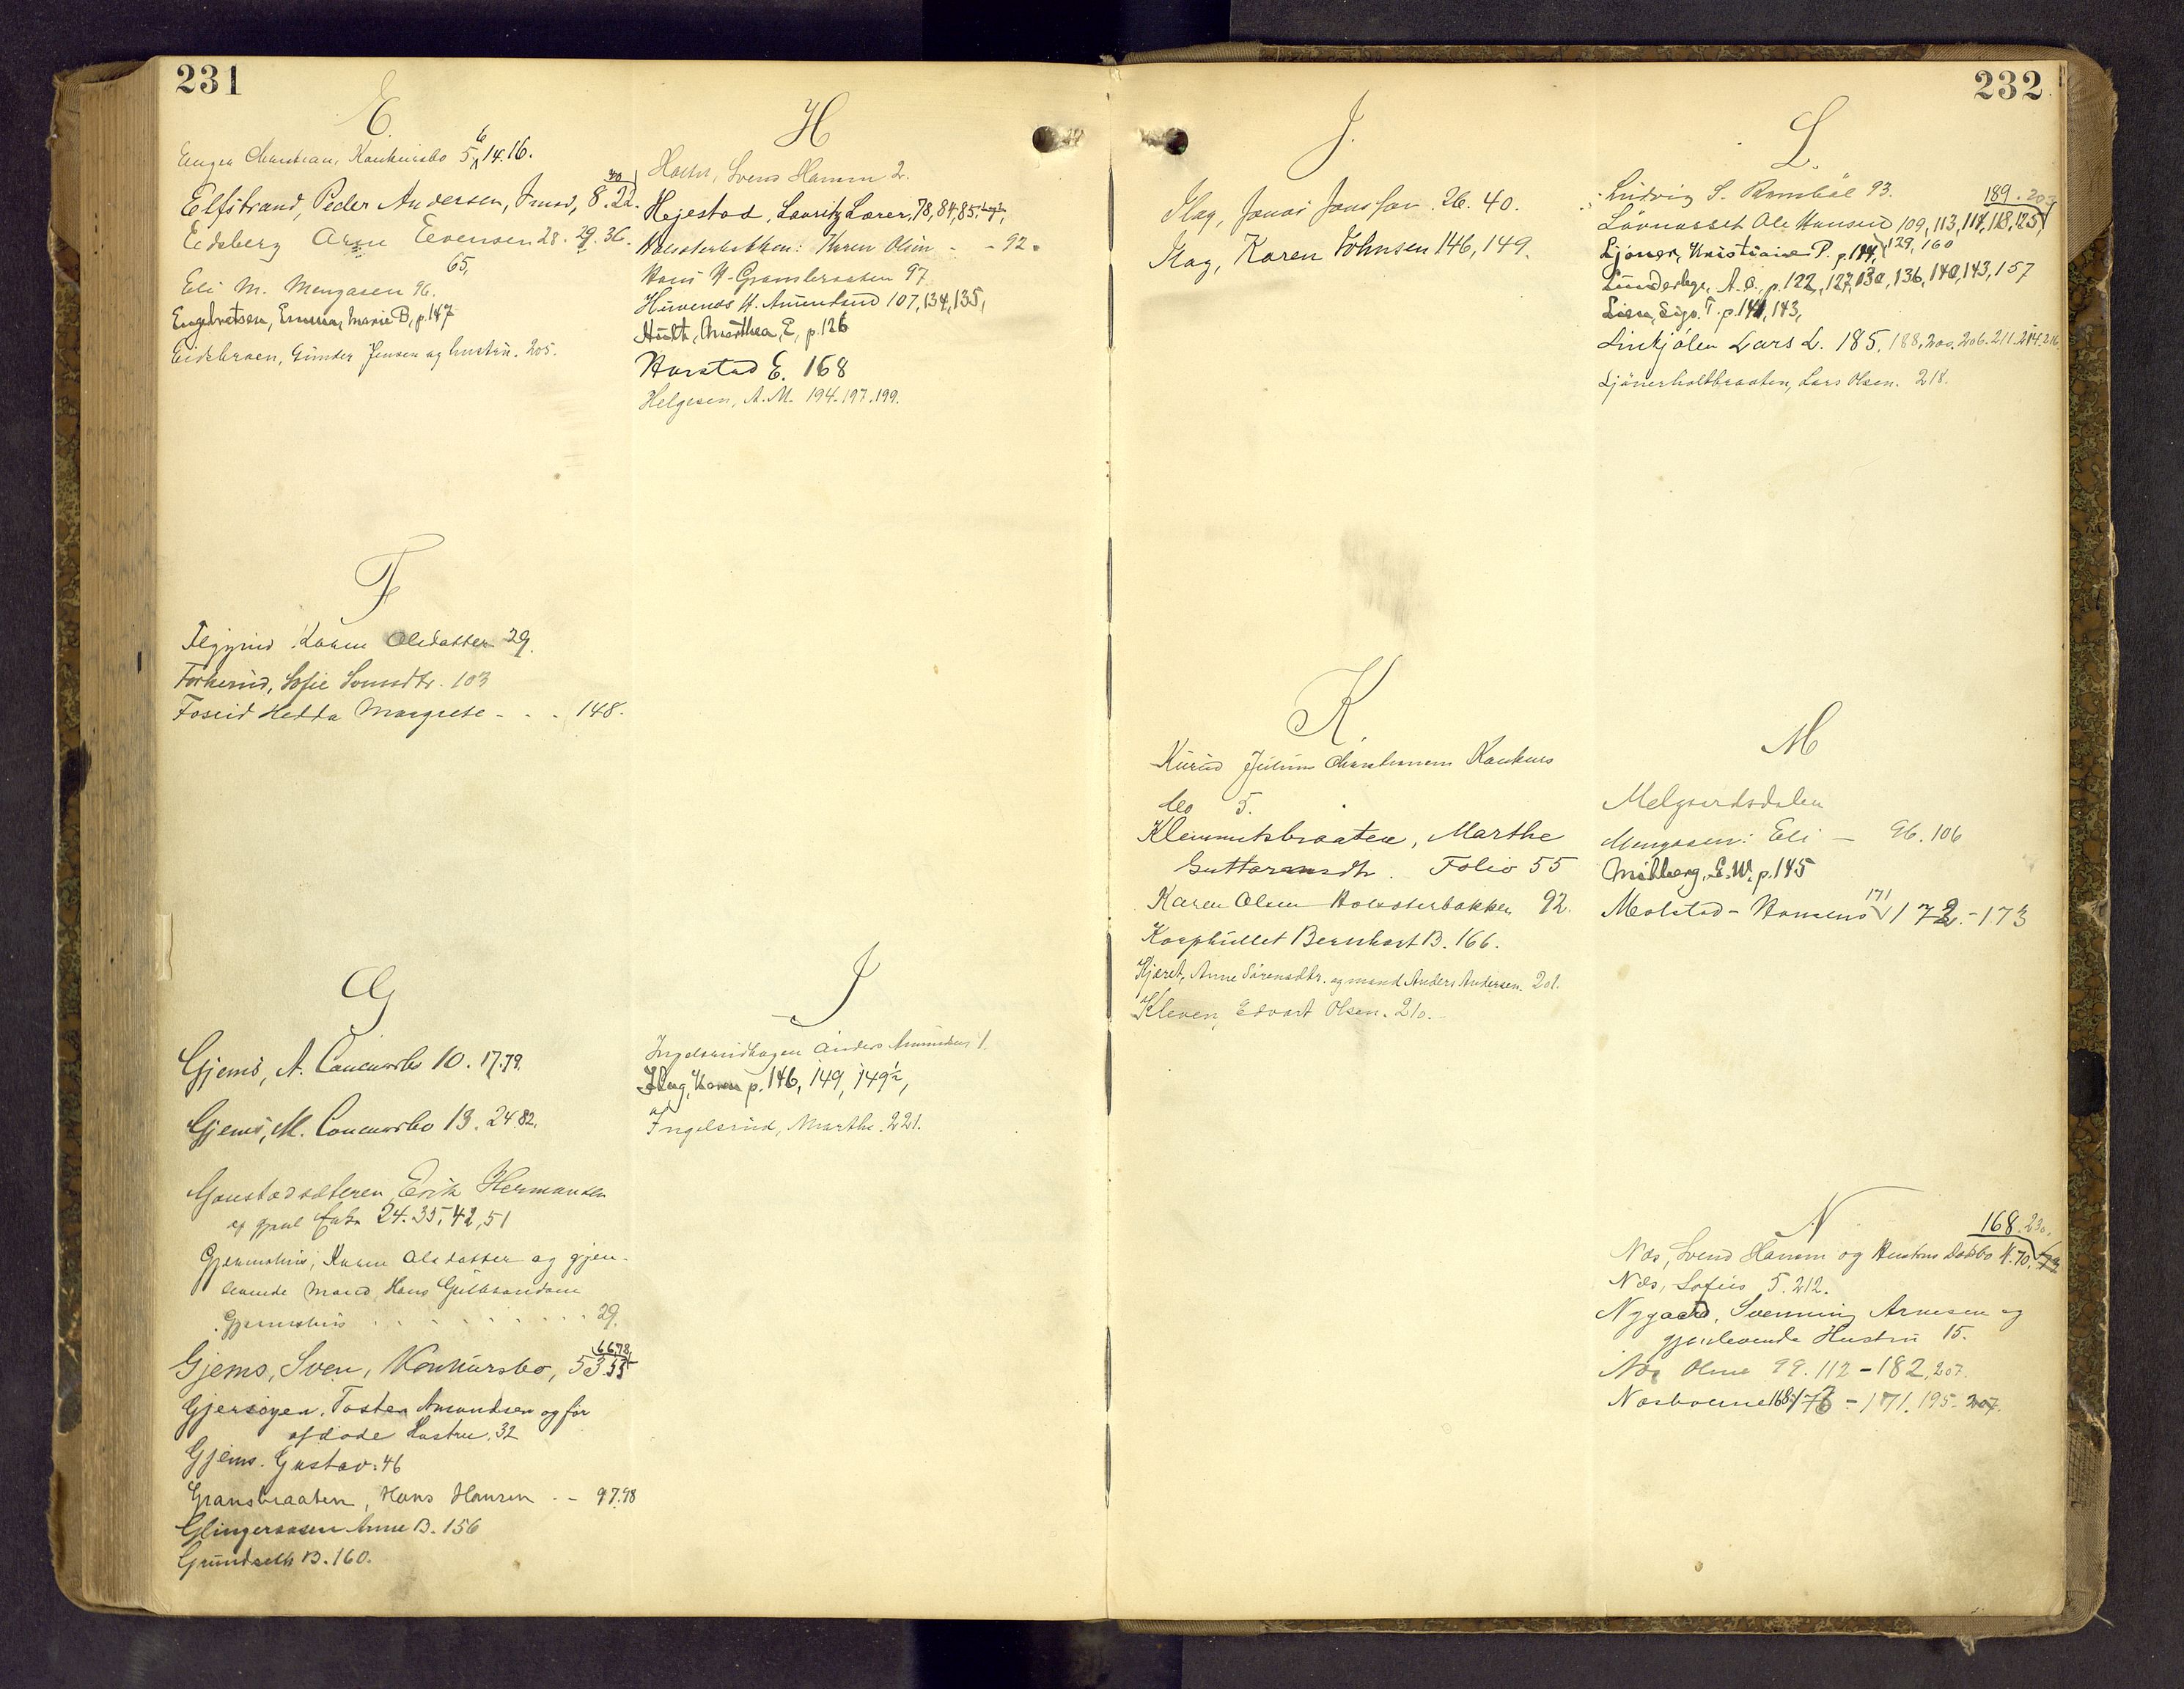 231
E.
Christian, Konkursbo 5, 6 14. 16.
Elfstrand, Peder Andersen, 8. 22.
Eidsberg Arne Evensen 28. 29. 36.
65,
Eli M. Mengaasen 96.
Engebretsen, Emma, Marie B, p. 147
Eidsbraaen, Gunder Jensen og hustru. 205.
F
Karen Olsdatter 29.
Forkerud, Sofie 103
Foseid Hedda Margrete - . . 148.
G
Gjems, A. Concursbo 10. 17. 79.
Gjems, M. Concursbo 13. 24. 82.
Gaustadsæteren, Erik Hermansen
24. 35, 42, 51
Karen Olsdatter og gjen-
levende Mand Hans
29.
66 78
Gjems, Sven, Konkursbo, 53. 55
Gjersöyen. Tosten Amundsen og for
afdöde Hustru. 32
Gjems. Gustav. 46
Gransbraaten, Hans Hansen . - 97. 98
Glingeraasen Anne B. 156
Grundseth B. 160.
H
Svend Hamm 2.
Hejestad, Lauritz Lærer, 78, 84, 85.
Holsæterbakken: Karen Olsen - - 92.
Hans H. Gransbraaten 97.
H. Amundsrud 107, 134, 135,
Hult, Marthea, E, p. 126
Harstad E. 168
Helgesen, A. M. 194. 197. 199.
I
Ingelsrudhagen Anders Amundsen 1.
Ilag, Karen p. 146, 149, 149½,
Ingelsrud, Marthe. 221.
232
J.
Ilag, Jonas Jonsson. 26. 40.
Ilag, Karen Johnsen 146, 149.
K.
Kurud Julius Christiansen Konkurs
bo 5.
Klemmetsbraaten, Marthe
Guttormsdtr. Folio 55
Karen Olsen Holsæterbakken 92.
Korphullet Bernhart B. 166.
Kjæret, Anne Sörensdtr. og mand Anders Andersen. 201.
Kleven, Edvart Olsen. 210.
L.
Ludvig S. Ramböl 93.
189.
Lövnæsset Ole Hansen 109, 113, 114, 118, 125,
Ljöner, Kristiane P. p. 114, 129, 160
Lunderbye, A. O., p. 122, 127, 130, 136, 140, 143, 157
Lien, Sigv. T. p. 141, 143,
Linkjölen Lars L. 185. 188. 200. 206. 211. 214. 216.
Ljönerholtbraaten, Lars Olsen. 218.
M
Melgaardsdalen
Mengaasen: Eli - 96. 106
Milberg, E. W. p. 145
171
Molstad - Hansens 172. - 173
N
168. 230.
Næs, Svend Hamm og Hustrus dødsbo 4. 70.
Næs, Sofus S. 212.
Nygaard, Svenning Arnesen og
gjenlevende Hustru 15.
Næs Oline 99. 112 - 182, 207.
168 - 171. 195. 207.